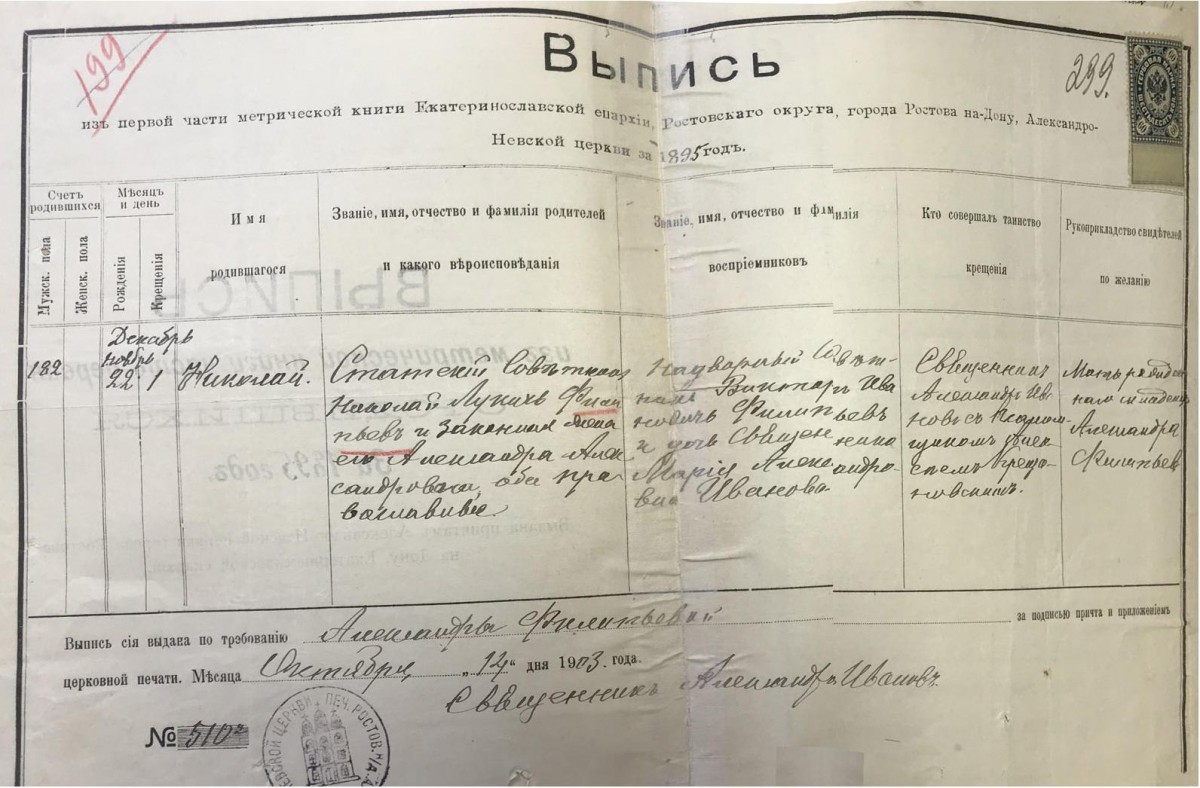 199
299.
Выпись
изъ первой части метрической книги Екатеринославской епархіи, Ростовскаго округа, города Ростова на-Дону, Александро-
Невской церкви за 1895 годъ.
Счетъ родившихся
Мужск. пола
Женск. пола
Мѣсяцъ и день
Рожденія
Крещенія
Имя
родившагося
Званіе, имя, отчество и фамилія родителей
и какого вѣроисповѣданія
Званіе, имя, отчество и фамилія
воспріемниковъ
Кто совершалъ таинство
крещенія
Рукоприкладство свидѣтелей
по желанію
182
Декабрь
Ноябрь
22
1
Николай.
Статскій Совѣтникъ
Николай Лукичъ Фили
пьевъ и законная жена
его Александра Алек
сандровна, оба пра
вославные
Надворный Совѣт-
никъ Викторъ Ива
новичъ Филипьевъ
и дочь Священника
Марія Александро-
вна Иванова
Священникъ
Александръ Ива
новъ съ
Мать
Александра
Филипьев
Выпись сія выдана по трѣбованію Александры Филипьевой за подписью причта и приложеніемъ
церковной печати. Мѣсяца Октября „14" дня 1903. года.
Священникъ Александръ Ивановъ
№ 510
НЕВСКОЙ ЦЕРКВИ ПЕЧ. РОСТОВ. Н/Д.